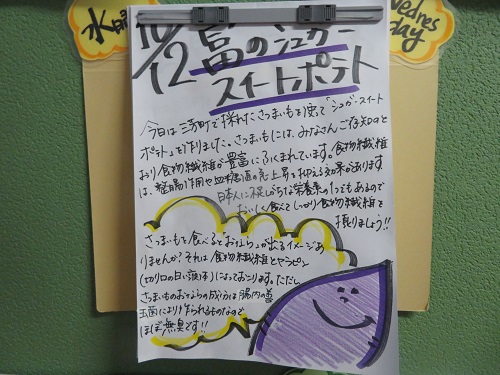 水曜
Wednesday
10/12 畠のシュガー
スイートポテト
今日は三芳町で採れたさつまいもを使って「シュガースイート
ポテト」を作りました。さつまいもには、みなさんご存知のと
おり食物繊維が豊富にふくまれています。食物繊維に
は、整腸作用や血糖値の急上昇を抑える効果があります
日本人に不足しがちな栄養素の1つでもあるので
おいしく食べてしっかり食物繊維を
摂りましょう!!
さつまいもを食べると"おなら"が出るイメージあ
りませんか?それは食物繊維とヤラピン
(切り口の白い液体)によっておこります。ただし、
さつまいものおならの成分は腸内の善
玉菌により作られるものなので
ほぼ無臭です!!